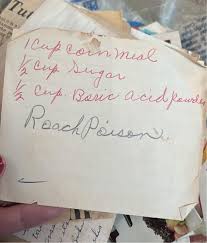 1 Cup corn meal
½ Cup Sugar
½ Cup. Boric acid powder
Roach Poison.